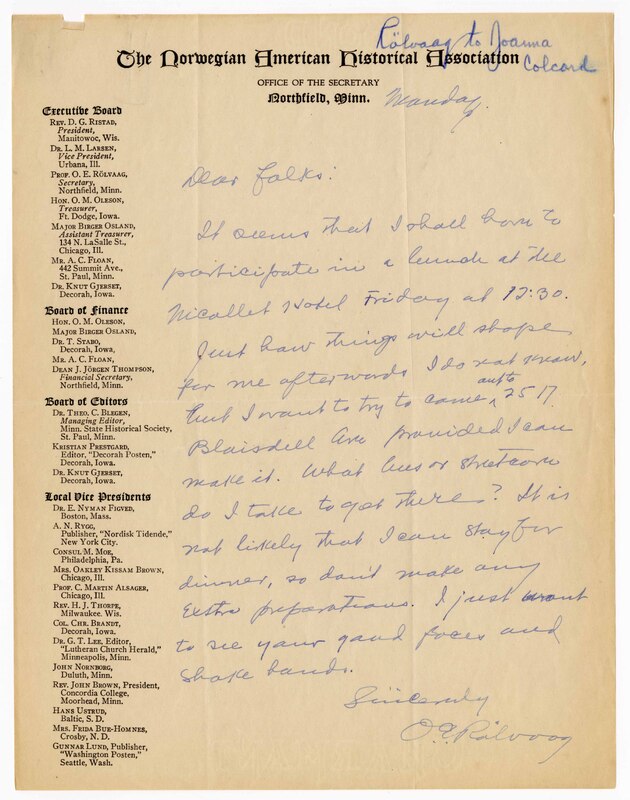 Rölvaag to Joanna
Colcord
The Norwegian American Historical Association
OFFICE OF THE SECRETARY
Northfield, Minn.
Monday.
Executive Board
REV. D. G. RISTAD,
President,
Manitowoc, Wis.
DR. L. M. LARSEN,
Vice President,
Urbana, Ill.
PROF. O. E. RÖLVAAG,
Secretary,
Northfield, Minn.
HON. O. M. OLESON,
Treasurer,
Ft. Dodge, Iowa.
MAJOR BIRGER OSLAND,
Assistant Treasurer,
134 N. LaSalle St.,
Chicago, Ill.
MR. A. C. FLOAN,
442 Summit Ave.,
St. Paul, Minn.
DR. KNUT GJERSET,
Decorah, Iowa.
Board of Finance
HON. O. M. OLESON,
MAJOR BIRGER OSLAND,
DR. T. STABO,
Decorah, Iowa,
MR. A. C. FLOAN,
DEAN J. JÖRGEN THOMPSON,
Financial Secretary,
Northfield, Minn.
Board of Editors
DR. THEO. C. BLEGEN,
Managing Editor,
Minn. State Historical Society,
St. Paul, Minn.
KRISTIAN PRESTGARD,
Editor, "Decorah Posten,"
Decorah, Iowa.
DR. KNUT GJERSET,
Decorah, Iowa.
Local Vice Presidents
DR. E. NYMAN FIGVED,
Boston, Mass.
A. N. RYGG,
Publisher, "Nordisk Tidende,"
New York City.
CONSUL M. MOE,
Philadelphia, Pa.
MRS. OAKLEY KISSAM BROWN,
Chicago, Ill.
PROF. C. MARTIN ALSAGER,
Chicago, Ill.
REV. H. J. THORPE,
Milwaukee. Wis.
COL. CHR. BRANDT,
Decorah, Iowa.
DR. G. T. LEE, Editor,
"Lutheran Church Herald,"
Minneapolis, Minn.
JOHN NORNBORG,
Duluth, Minn.
REV. JOHN BROWN, President,
Concordia College,
Moorhead, Minn.
HANS USTRUD,
Baltic, S. D.
MRS. FRIDA BUE-HOMNES,
Crosby, N. D.
GUNNAR LUND, Publisher,
"Washington Posten,"
Seattle, Wash.
Dear folks:
It seems that I shall have to
participate in a lunch at the
Nicollet Hotel Friday at 12:30.
Just how things will shape
for me afterwards I do not know,
but I want to try to come out to 2517
Blaisdell Ave provided I can
make it. What bus or streetcar
do I take to get there? It is
not likely that I can stay for
dinner, so don't make any
extra preparations. I just want
to see your good faces and
shake hands.
Sincerely
O E Rölvaag